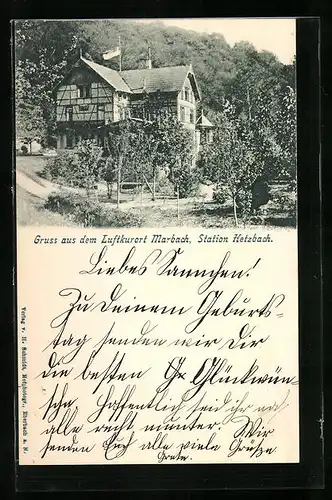 Gruss aus dem Luftkurort Marbach, Station Hetzbach.
Liebes Sannchen!
Zu Deinem Geburts-
tag senden wir Dir
die besten Glückwün-
sche. Hoffentlich seid ihr noch
alle recht munter. Wir
senden Euch alle viele Grüsse
Verlag v. H. Schmidt, Hofphotogr., Eberbach a. N.